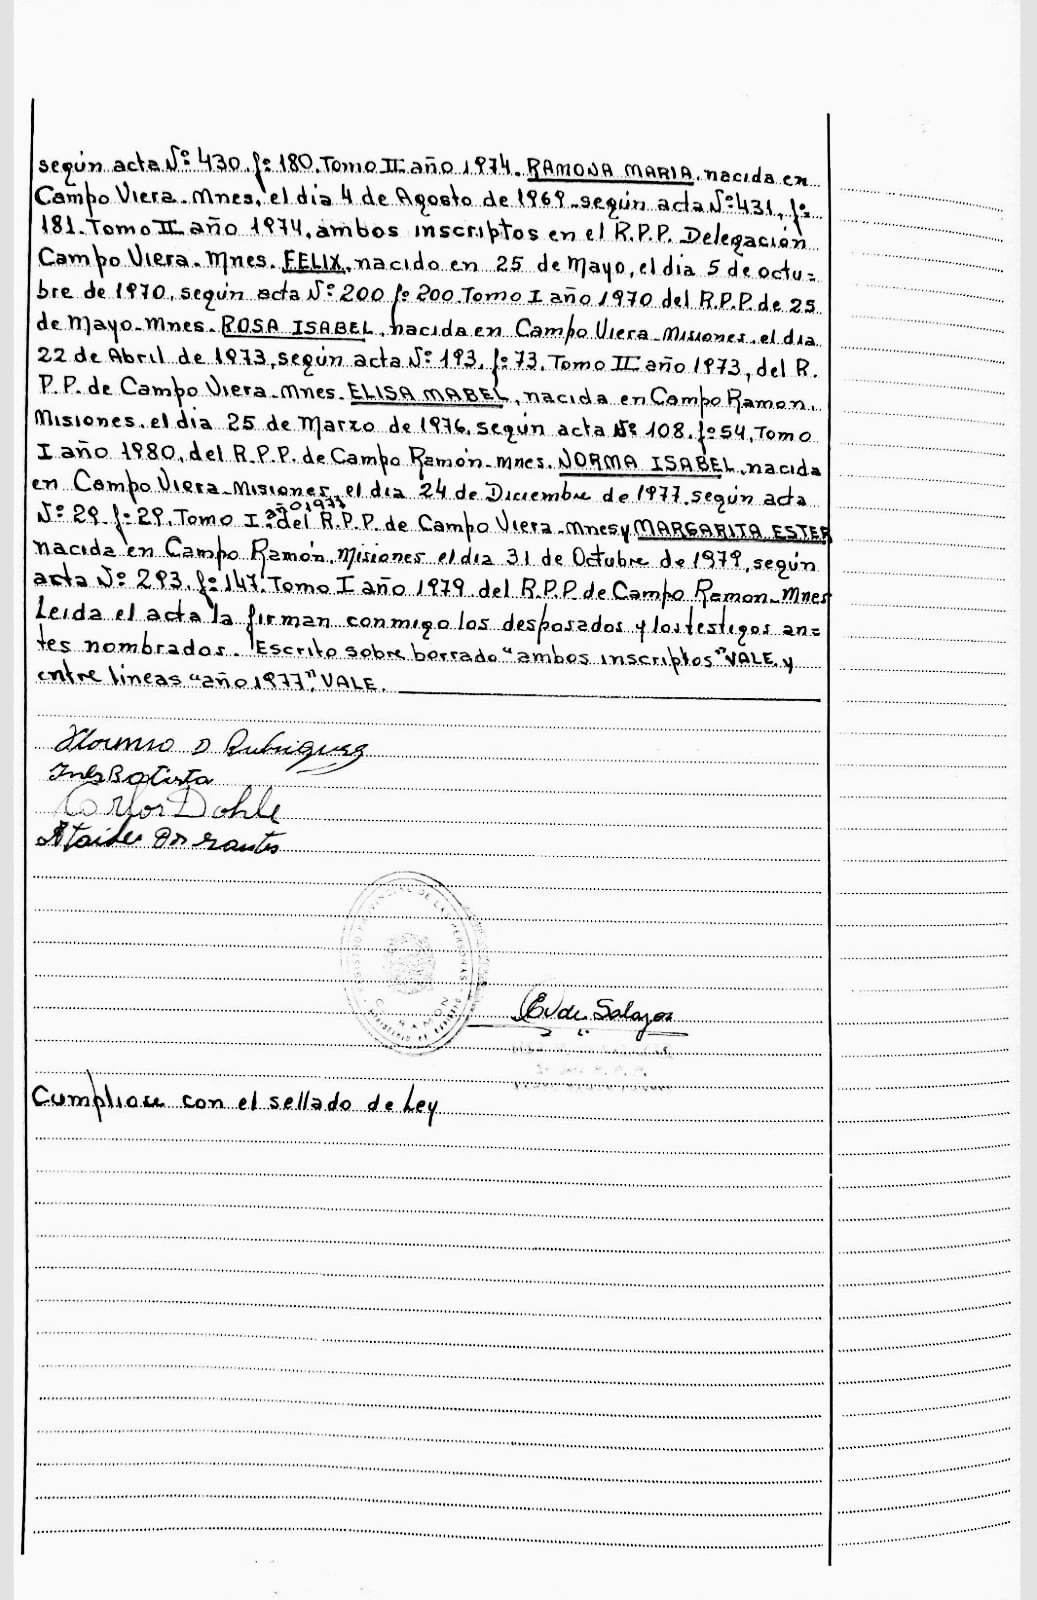 según acta Nº 430. fº 180. Tomo II año 1974. RAMONA MARIA, nacida en
Campo Viera - Mnes, el día 4 de Agosto de 1969 - según acta Nº 431, fº
181. Tomo II año 1974, ambos inscriptos en el R.P.P. Delegación
Campo Viera - Mnes. FELIX, nacido en 25 de Mayo, el día 5 de octu=
bre de 1970, según acta Nº 200 fº 200. Tomo I año 1970 del R.P.P. de 25
de Mayo - Mnes. ROSA ISABEL, nacida en Campo Viera - Misiones, el día
22 de Abril de 1973, según acta Nº 193. fº 73. Tomo II año 1973, del R.
P.P. de Campo Viera - Mnes. ELISA MABEL, nacida en Campo Ramon.
Misiones, el día 25 de Marzo de 1976, según acta Nº 108. fº 54, Tomo
I año 1980, del R.P.P. de Campo Ramón - Mnes. NORMA ISABEL, nacida
en Campo Viera - Misiones, el día 24 de Diciembre de 1977. según acta
año 1977
Nº 29. fº 29. Tomo I. del R.P.P. de Campo Viera - Mnes y MARGARITA ESTER
nacida en Campo Ramón. Misiones el día 31 de Octubre de 1979, según
acta Nº 293. fº 147. Tomo I año 1979 del R.P.P de Campo Ramon - Mnes
Leída el acta la firman conmigo los desposados y los testigos an=
tes nombrados. Escrito sobre borrado "ambos inscriptos" VALE. y
entre líneas "año 1977". VALE.
D Rubriguez
Inés Batista
Carlos Dohle
REGISTRO PROVINCIAL DE LAS PERSONAS
C. RAMON
MINISTERIO DE GOBIERNO
E V de Salazar
Cumpliose con el sellado de Ley